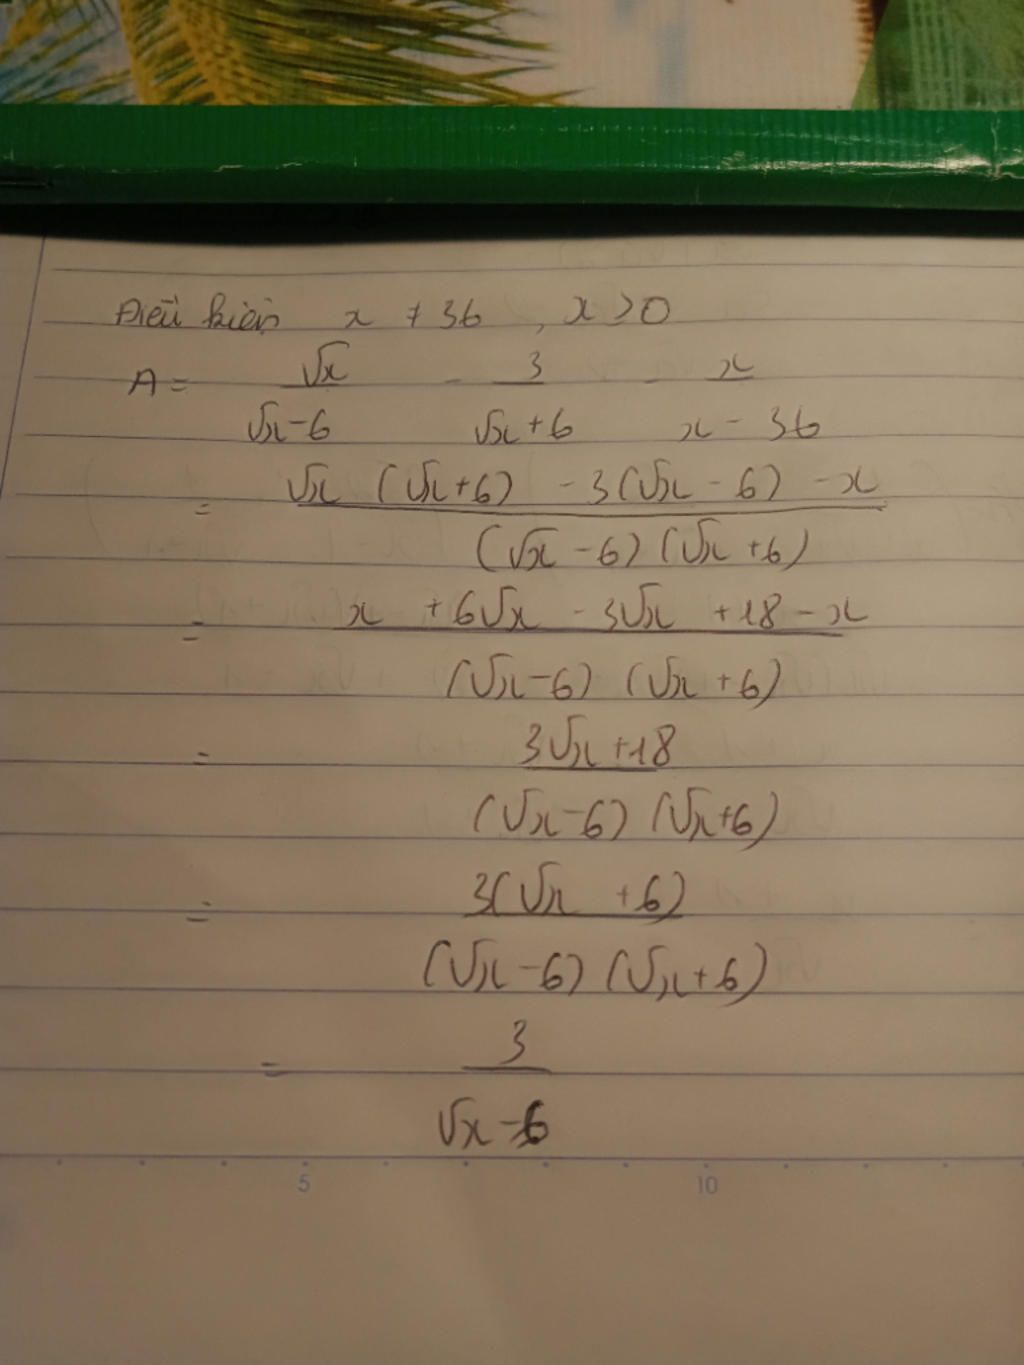 Điều kiện x ≠ 36 , x > 0
A = √x/(√x-6) - 3/(√x+6) - x/(x-36)
= (√x (√x+6) - 3(√x-6) - x)/((√x-6)(√x+6))
= (x + 6√x - 3√x + 18 - x)/((√x-6)(√x+6))
= (3√x+18)/((√x-6)(√x+6))
= 3(√x+6)/((√x-6)(√x+6))
= 3/(√x-6)
5 10